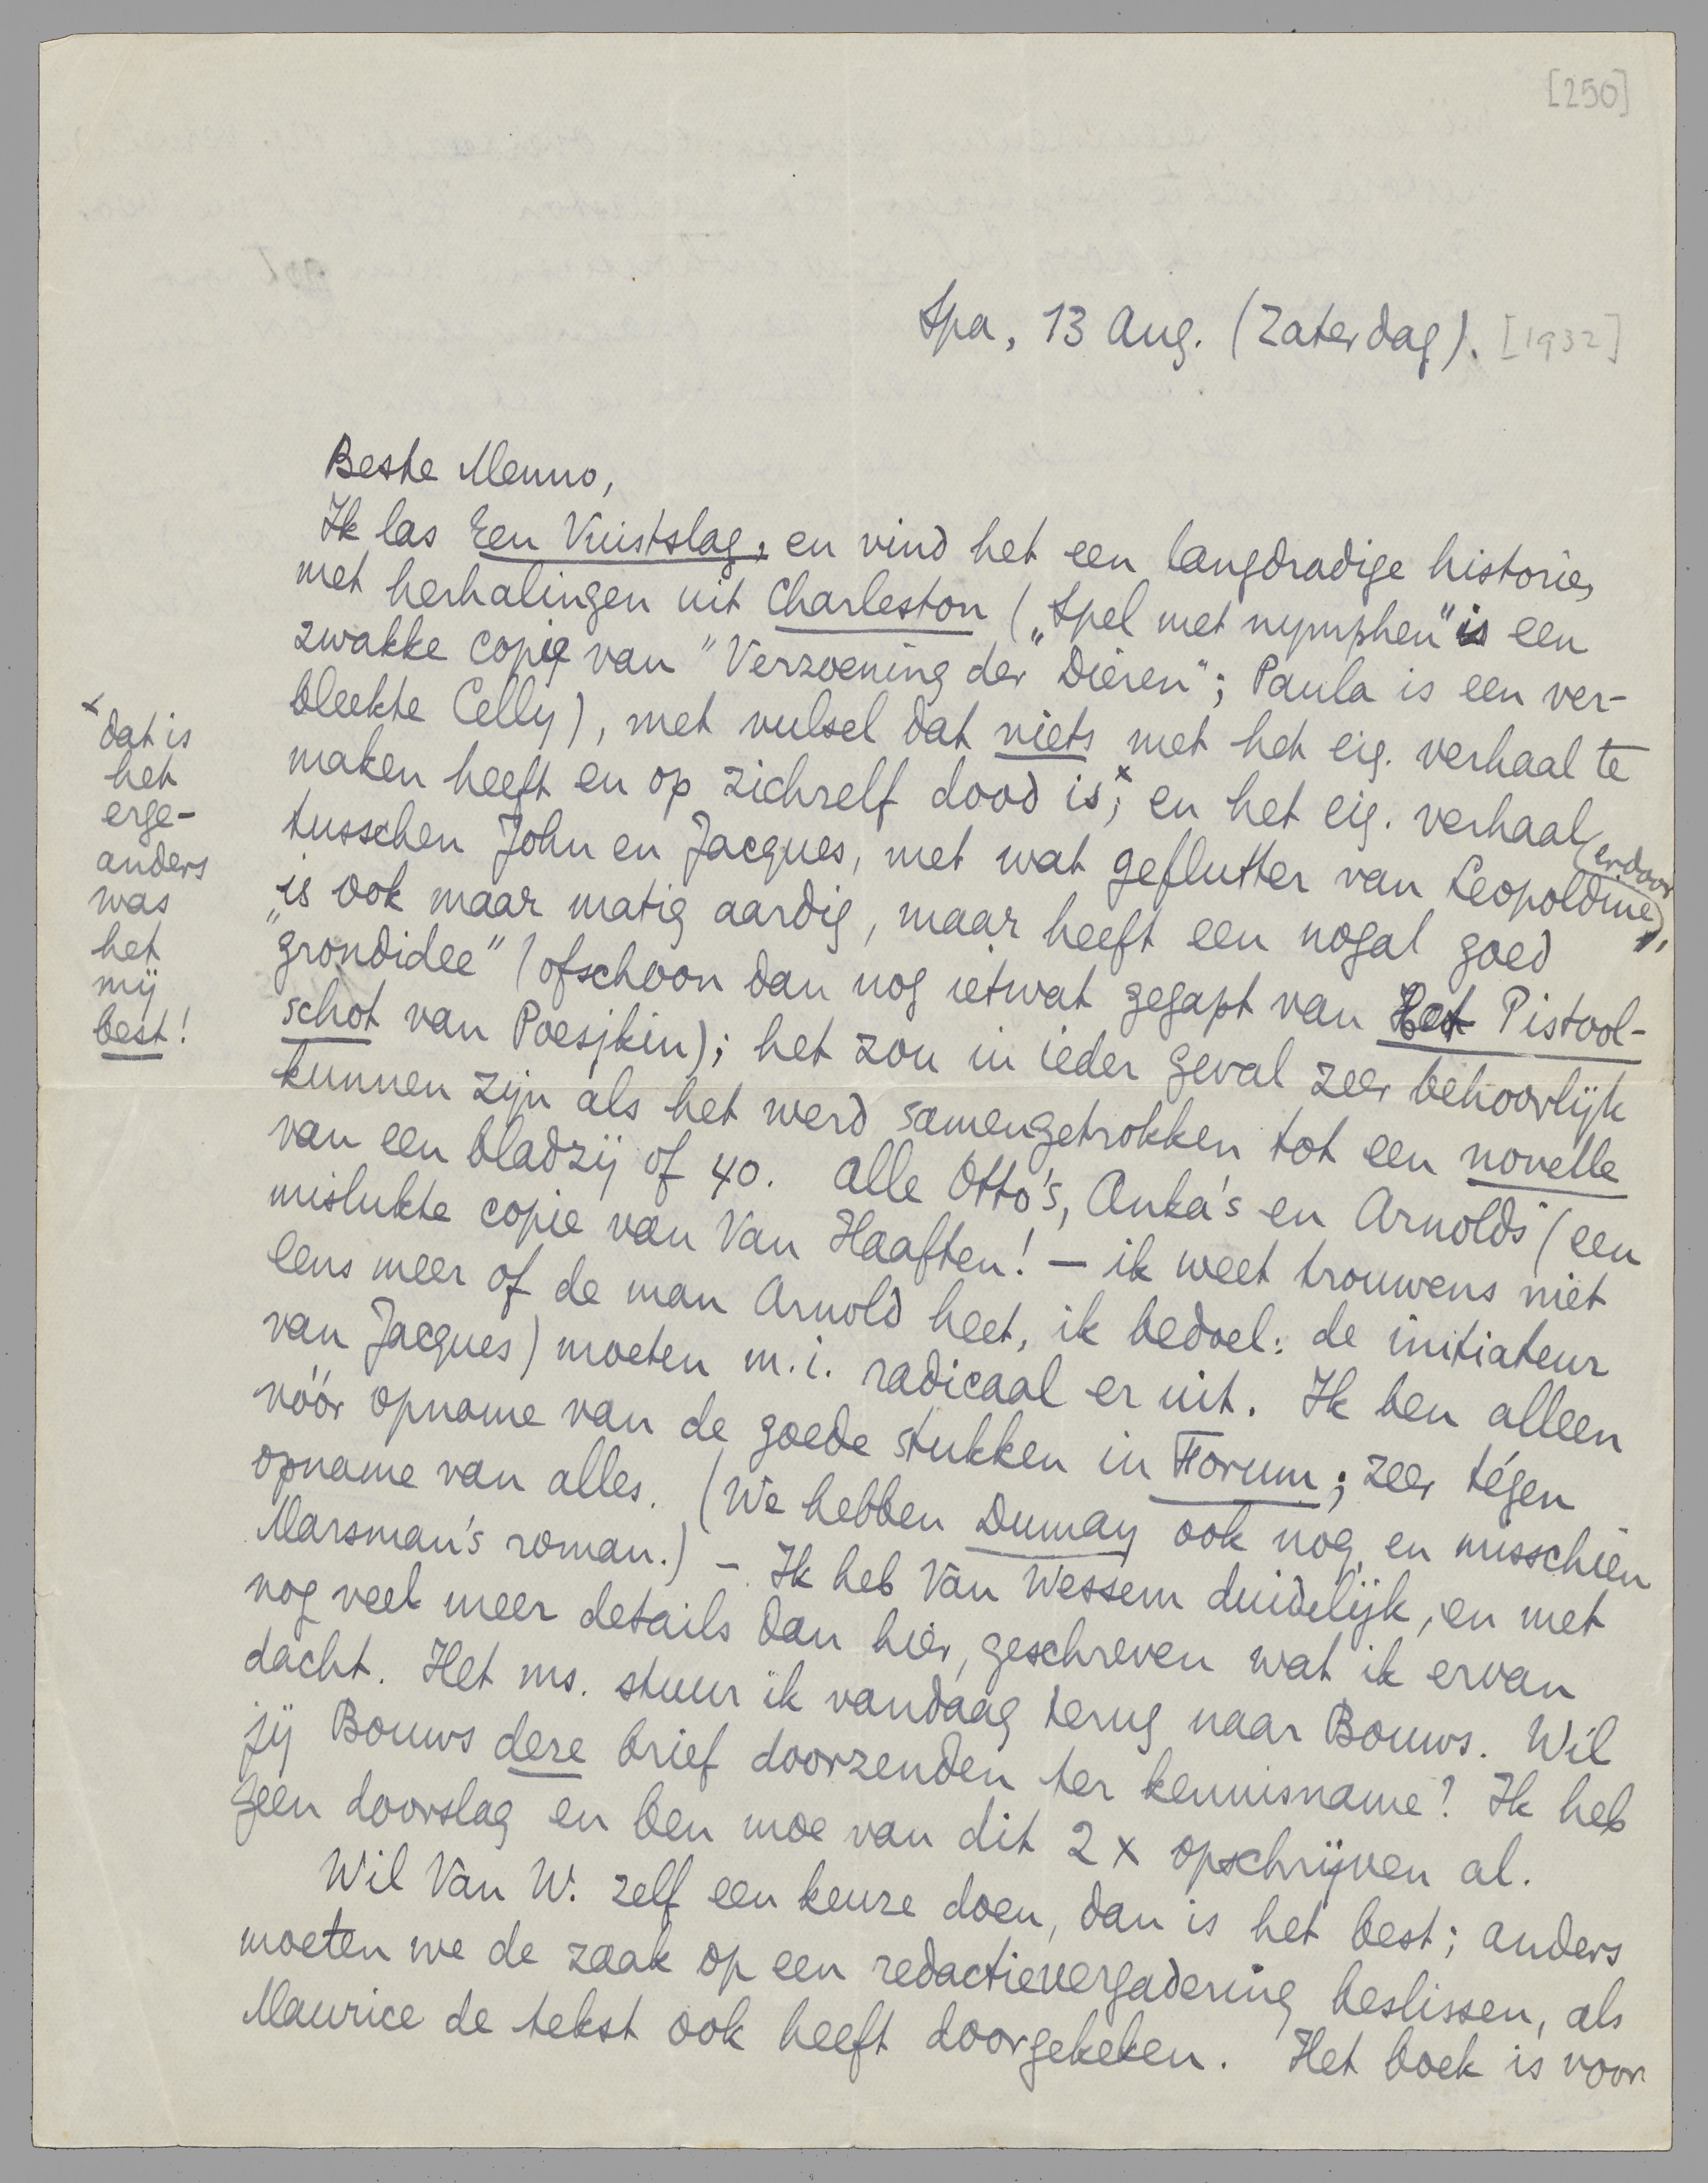 [250]
Spa, 13 Aug. (Zaterdag). [1932]
Beste Menno,
Ik las Een Vuistslag, en vind het een langdradige historie,
met herhalingen uit Charleston („Spel met nymphen" is een
zwakke copie van "Verzoening der Dieren"; Paula is een ver-
bleekte Celly), met vulsel dat niets met het eig. verhaal te
maken heeft en op zichzelf dood is;x en het eig. verhaal
tusschen John en Jacques, met wat geflutter van Leopoldine (erdoor),
is ook maar matig aardig, maar heeft een nogal goed
„grondidee" (ofschoon dan nog ietwat gegapt van Het Pistool-
schot van Poesjkin); het zou in ieder geval zeer behoorlijk
kunnen zijn als het werd samengetrokken tot een novelle
van een bladzij of 40. Alle Otto's, Anka's en Arnolds (een
mislukte copie van Van Haaften! – ik weet trouwens niet
eens meer of de man Arnold heet, ik bedoel: de initiateur
van Jacques) moeten m.i. radicaal er uit. Ik ben alleen
vóór opname van de goede stukken in Forum; zeer tégen
opname van alles. (We hebben Dumay ook nog, en misschien
Marsman's roman.) – Ik heb Van Wessem duidelijk, en met
nog veel meer details dan hier, geschreven wat ik ervan
dacht. Het ms. stuur ik vandaag terug naar Bouws. Wil
jij Bouws deze brief doorzenden ter kennisname? Ik heb
geen doorslag en ben moe van dit 2 x opschrijven al.
Wil Van W. zelf een keuze doen, dan is het best; anders
moeten we de zaak op een redactievergadering beslissen, als
Maurice de tekst ook heeft doorgekeken. Het boek is voor
x dat is
het
erge-
anders
was
het
mij
best!